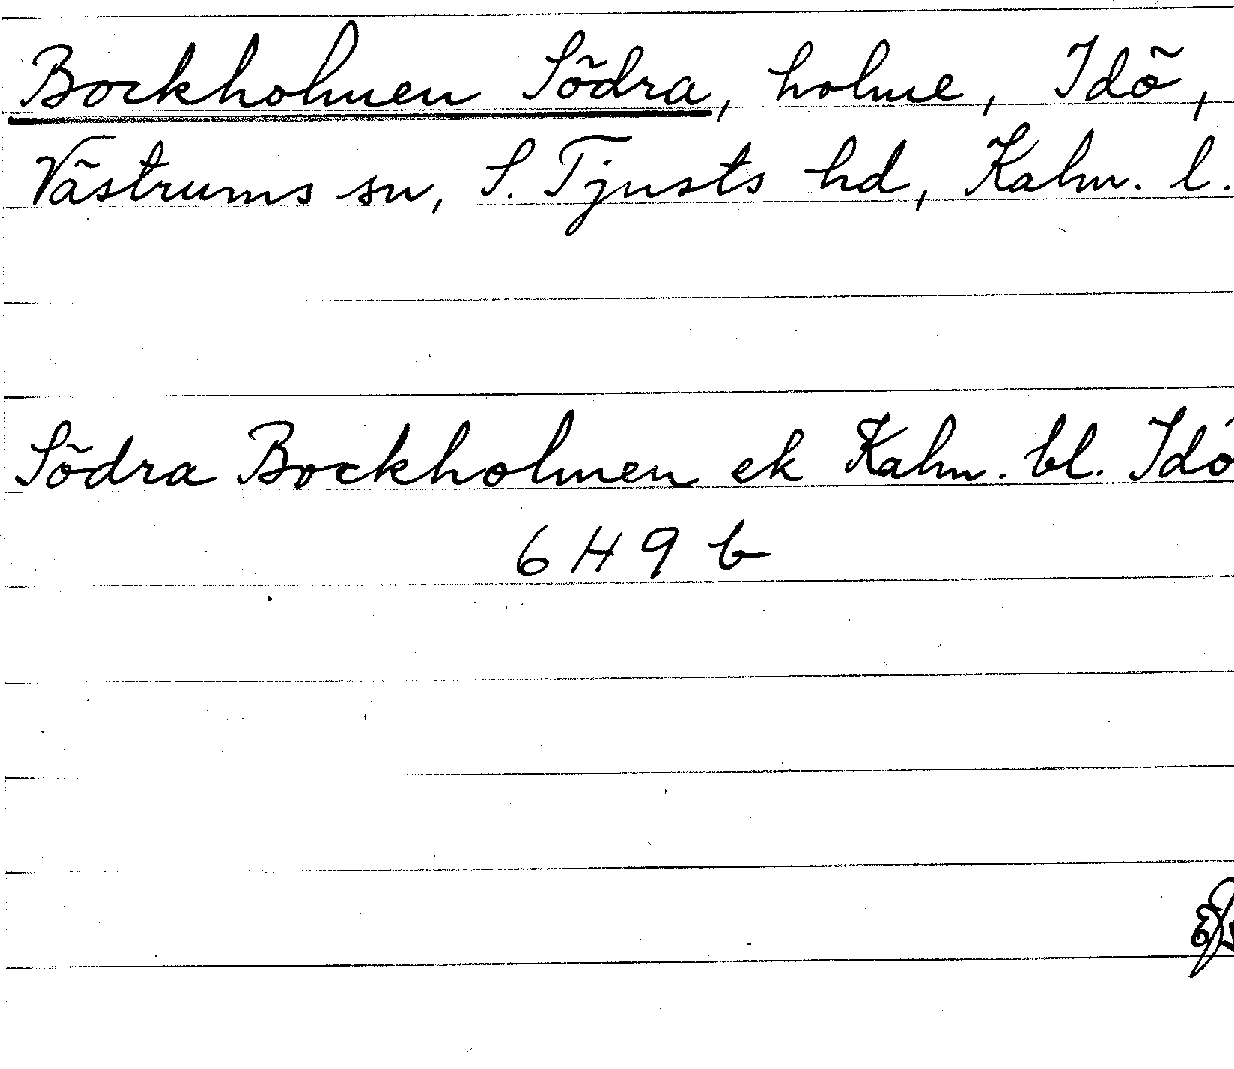 Bockholmen Södra, holme, Idö,
Västrums sn, S. Tjusts hd, Kalm. l.
Södra Bockholmen ek Kalm. bl. Idö
6 H 9 b